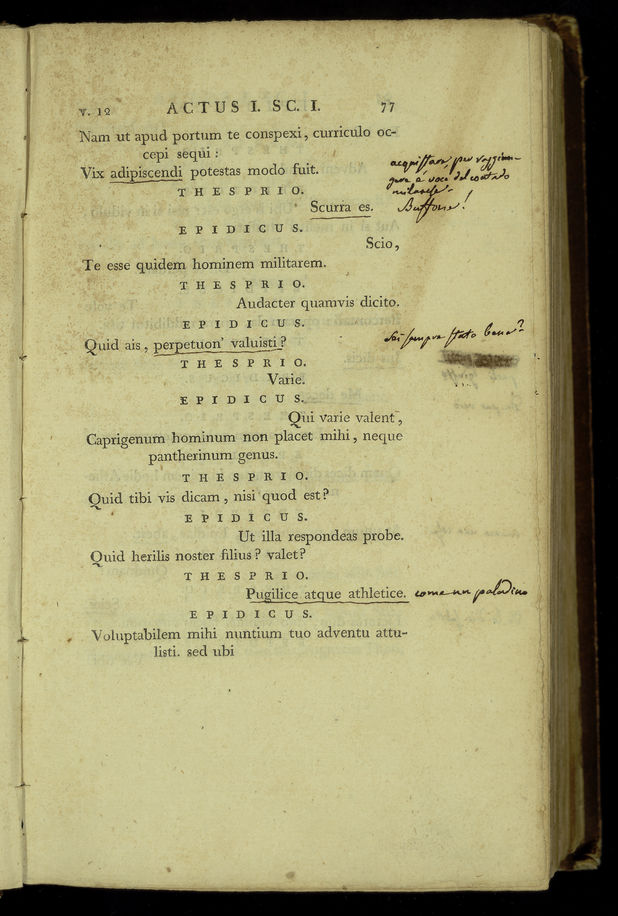 v. 12 ACTUS I. SC. I. 77
Nam ut apud portum te conspexi, curriculo oc-
cepi sequi :
Vix adipiscendi potestas modo fuit.
acquistare, per raggiun-
gere è voce del contado
milanese.
THESPRIO.
Scurra es.
Buffone!
EPIDICUS.
Scio,
Te esse quidem hominem militarem.
THESPRIO.
Audacter quamvis dicito.
EPIDICUS.
Quid ais, perpetuon' valuisti?
Sei sempre stato bene?
THESPRIO.
Varie.
EPIDICUS.
Qui varie valent,
Caprigenum hominum non placet mihi, neque
pantherinum genus.
THESPRIO.
Quid tibi vis dicam, nisi quod est?
EPIDICUS.
Ut illa respondeas probe.
Quid herilis noster filius? valet?
THESPRIO.
Pugilice atque athletice. come un paladino
EPIDICUS.
Voluptabilem mihi nuntium tuo adventu attu-
listi. sed ubi